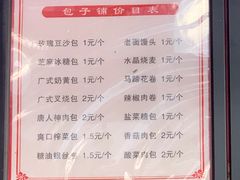 包子铺价目表
玫瑰豆沙包 1元/个 老面馒头 1元/个
芝麻冰糖包 1元/个 水晶烧麦 1元/个
广式奶黄包 1元/个 马蹄花卷 1元/个
广式叉烧包 2元/个 辣椒肉卷 1元/个
唐人神肉包 2元/个 盐菜糖包 1元/个
爽口榨菜包 1.5元/个 香菇肉包 2元/个
糖油银丝卷 1.5元/个 酸菜肉包 2元/个